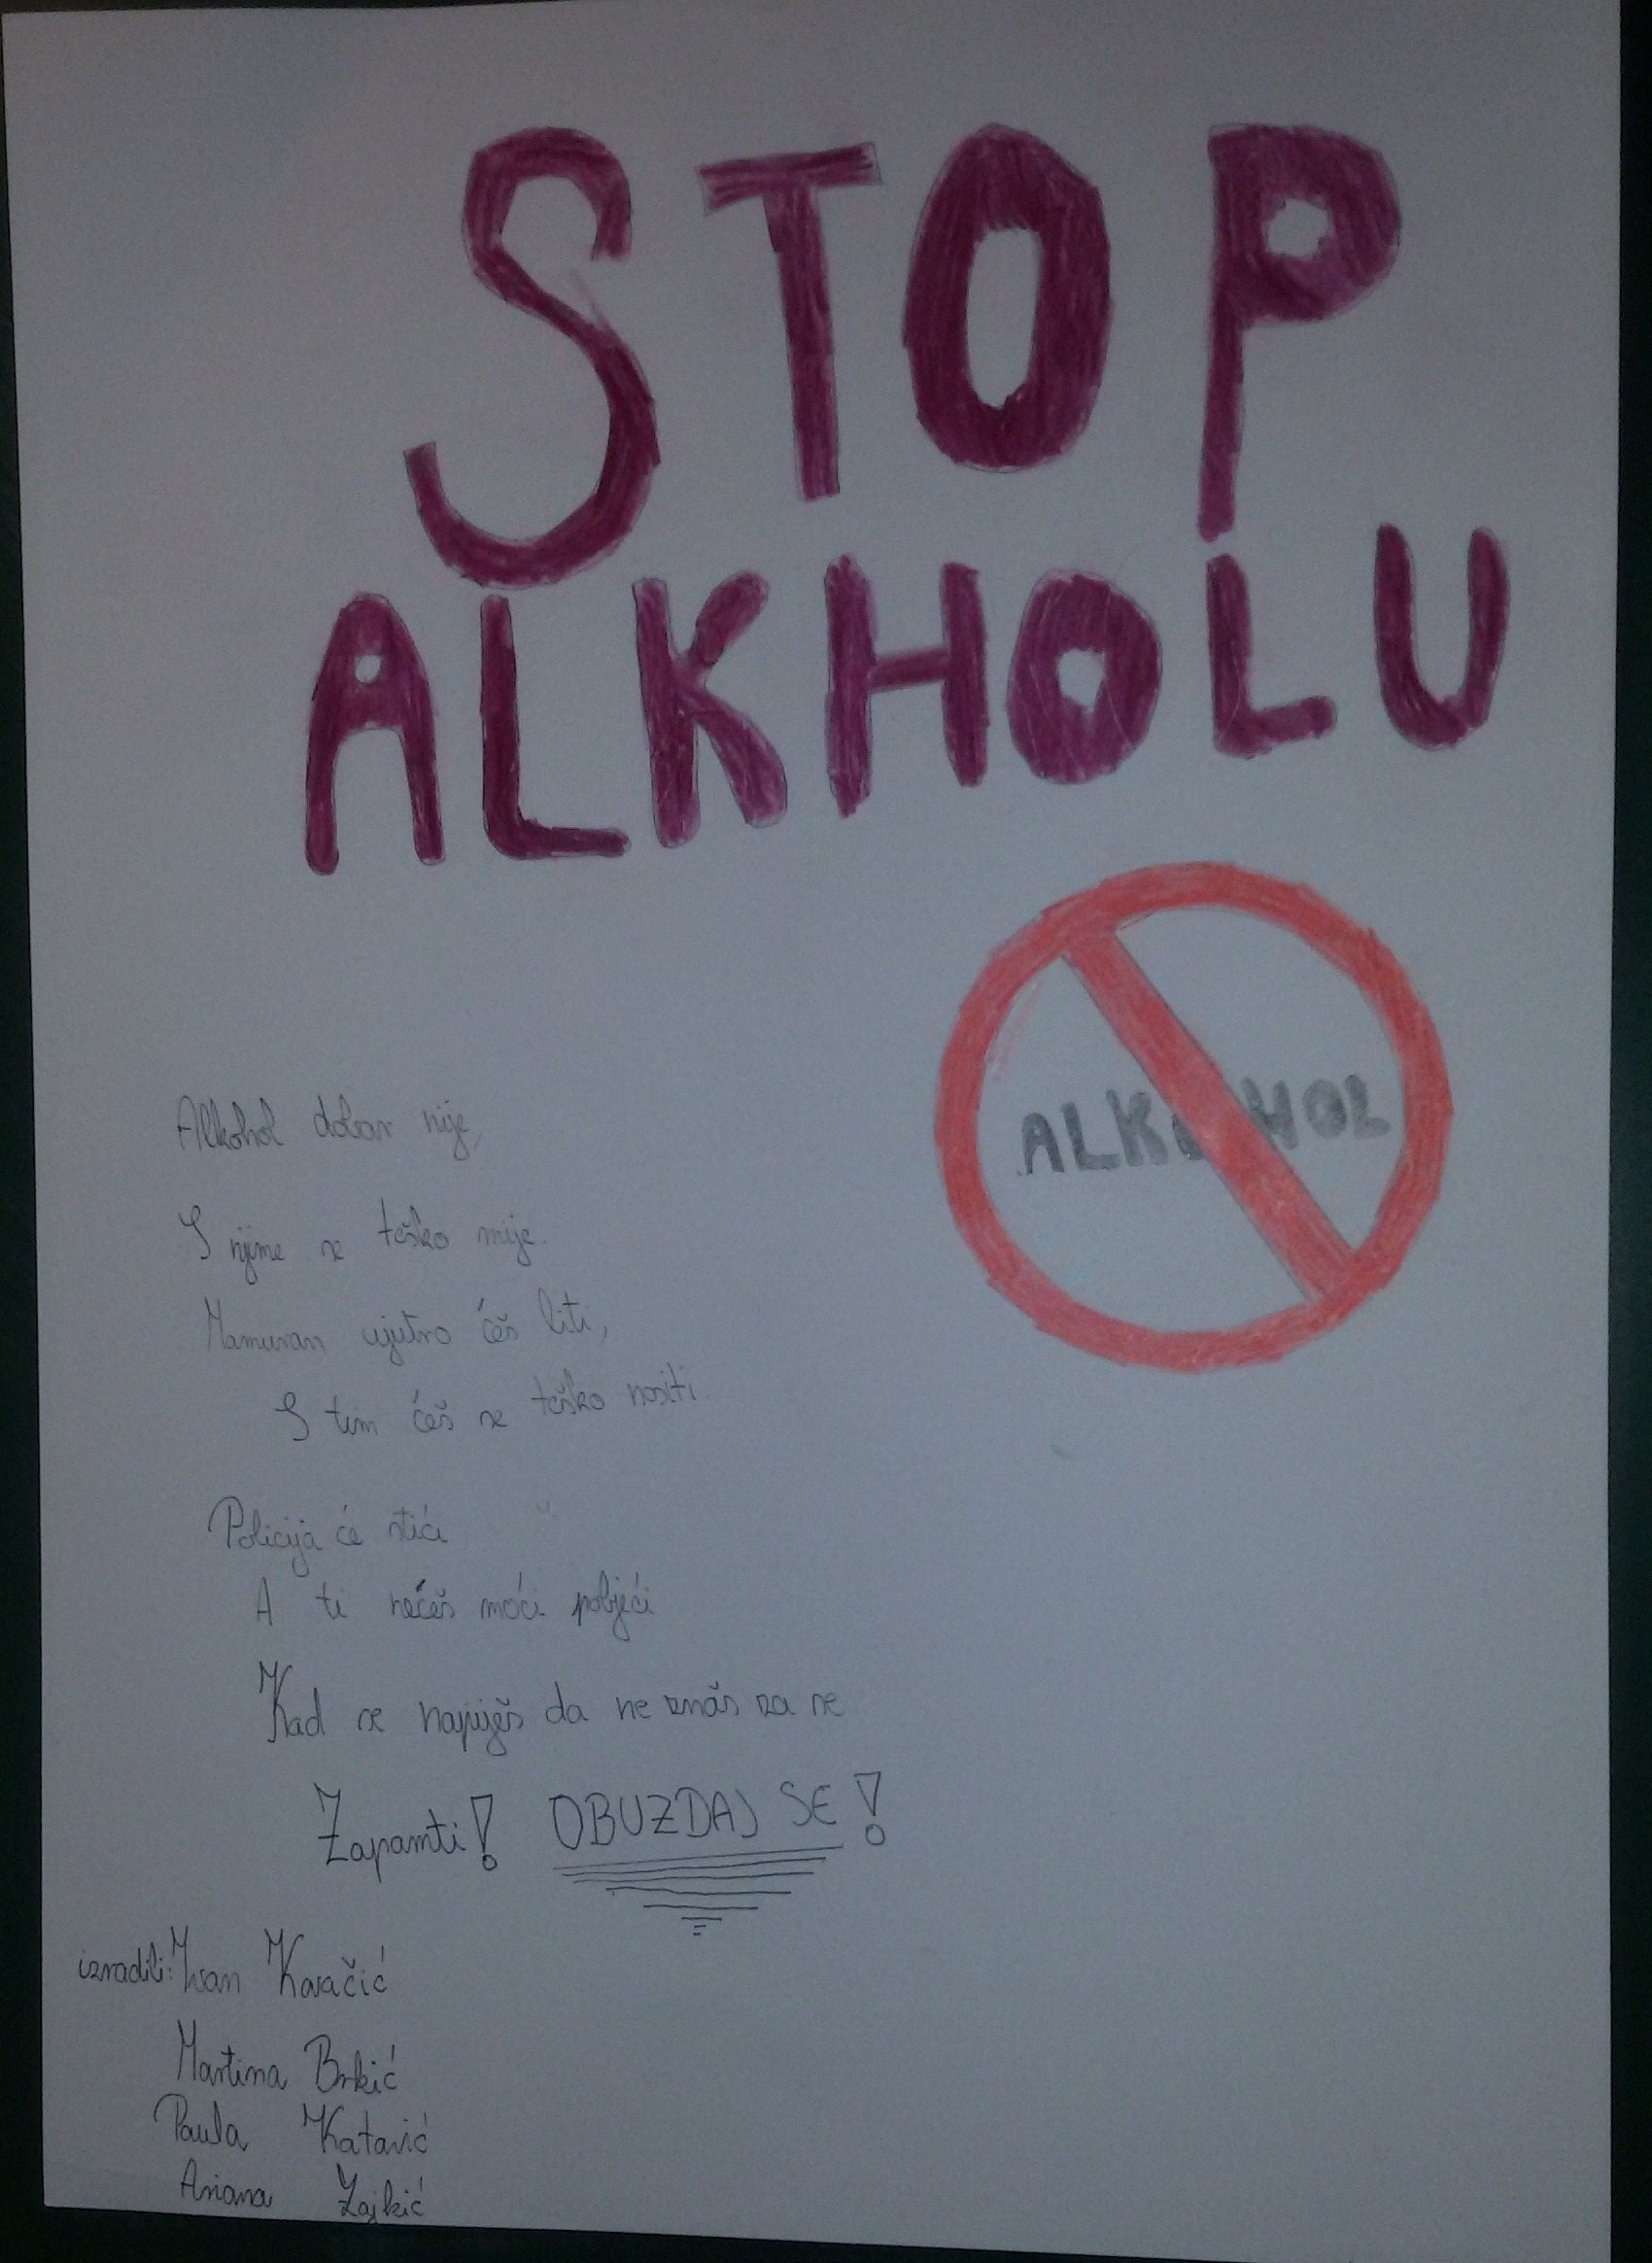 STOP
ALKHOLU
ALKOHOL
Alkohol dobar nije,
S njime se teško mije.
Mamuran ujutro ćeš biti,
S tim ćeš se teško nositi.
Policija će stići
A ti nećeš moći pobjeći
Kad se napiješ da ne znaš za se
Zapamti! OBUZDAJ SE!
izradili: Ivan Karačić
Martina Brkić
Paula Katavić
Ariana